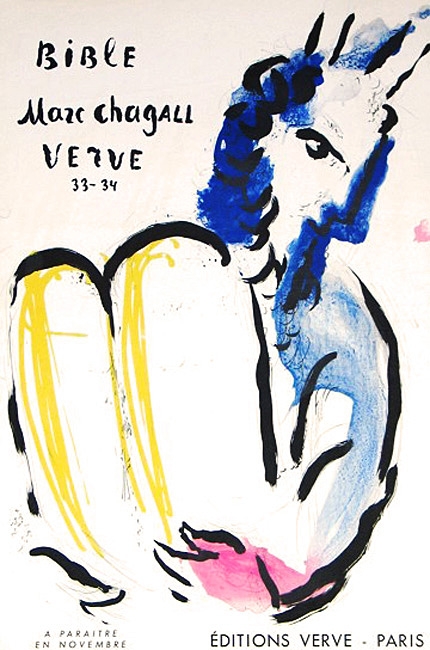 BiBLE
Marc chagall
VERVE
33-34
A PARAITRE
EN NOVEMBRE
ÉDITIONS VERVE - PARIS